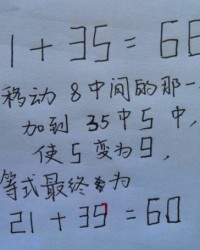 1+35=68
移动8中间的那一
加到35中5中,
使5变为9,
等式最终为
21+39=60